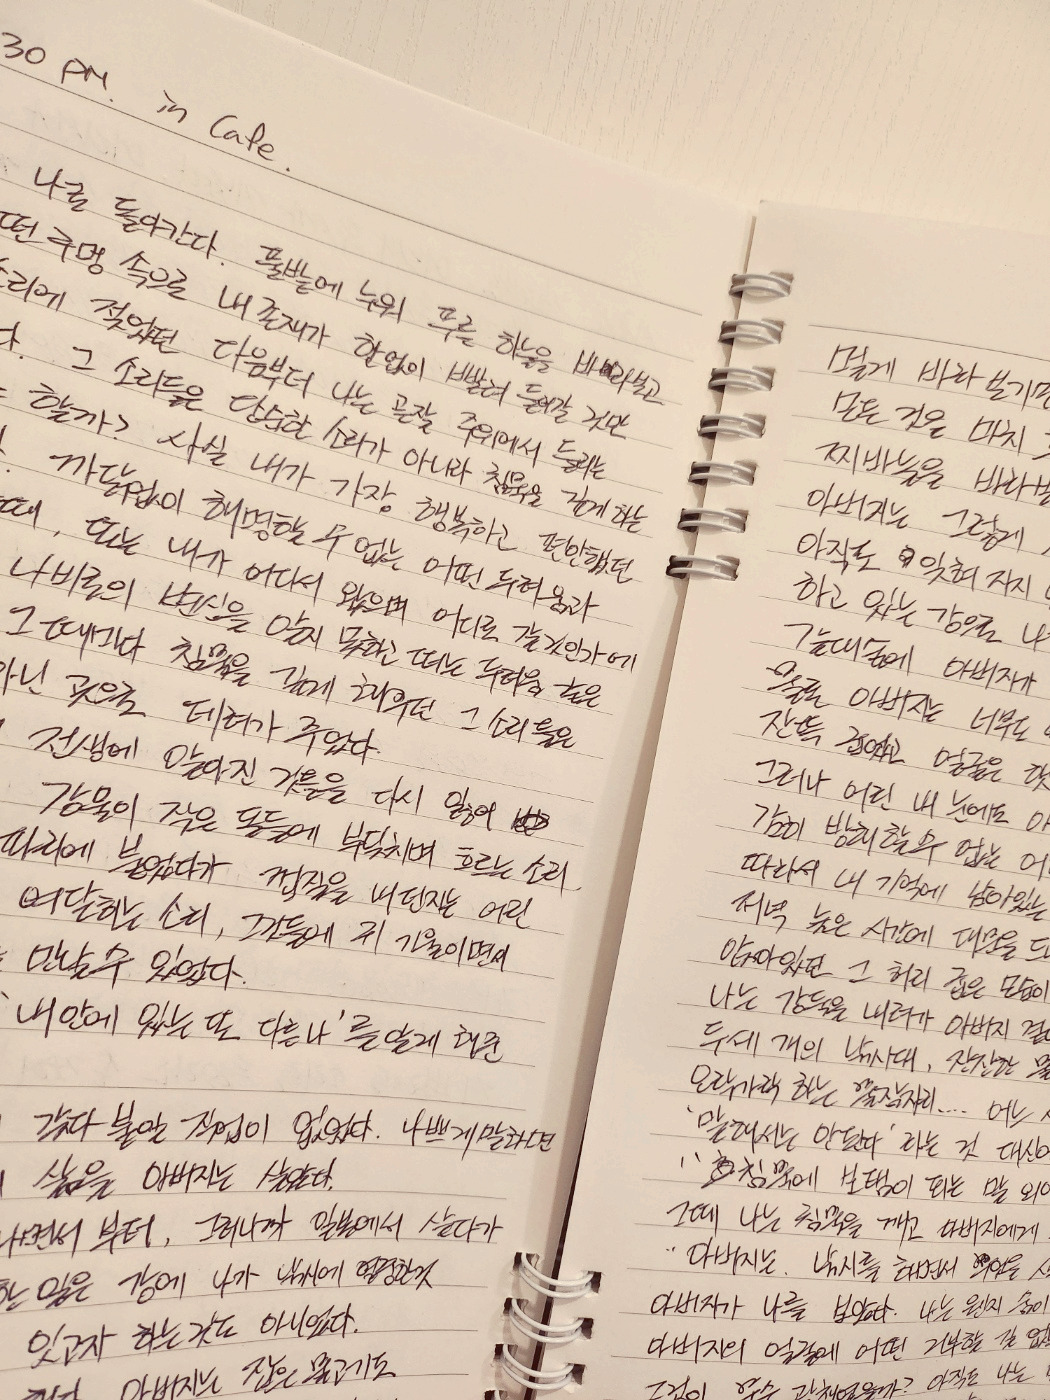 30 PM. in Cafe.
나로 돌아간다. 풀밭에 누워 푸른 하늘을 바라보고
떤 구멍 속으로 내 존재가 한없이 빨려 들어갈 것만
소리에 젖었던 다음부터 나는 곧잘 주위에서 들리는
다. 그 소리들은 단순한 소리가 아니라 침묵을 깊게 하는
할까? 사실 내가 가장 행복하고 편안했던
까닭없이 해명할 수 없는 어떤 두려움과
때, 또는 내가 어디서 왔으며 어디로 갈것인가에
나비로의 변신을 알지 못하고 떠는 두려움 같은
그때마다 침묵을 깊게 해주던 그 소리들은
아닌 곳으로 데려가 주었다.
전생에 알아진 것들을 다시 잃어
강물이 작은 돌들에 부딪치며 흐르는 소리
따리에 붙었다가 껍질을 내던지는 어린
여닫히는 소리, 그것들에 귀 기울이면서
만날 수 있었다.
'내 안에 있는 또 다른 나'를 알게 해준
갖다 붙일 직업이 없었다. 나쁘게 말하면
삶을 아버지는 살았다.
나면서 부터, 그러니까 일본에서 살다가
하는 일은 강에 나가 낚시에 열중한것
잊고자 하는 것도 아니었다.
아버지는 잡은 물고기도
멀게 바라보기만
모든 것을 마치
찌바늘을 바라보
아버지는 그렇게
아직도 잊혀지지
하고 있는 강으로
그늘때문에 아버지가
아버지는 너무도
잔뜩 굽었고 얼굴은
그러나 어린 내 눈에도
감히 방해할 수 없는
따라서 내 기억에 남아있는
저녁 늦은 시간에 대문을
앉아있던 그 허리 굽은 모습이
나는 강둑을 내려가 아버지 곁
두세 개의 낚시대, 잔잔한 물
오락가락 하는 물잠자리.... 어느
'말해서는 안된다'라는 것 대신
침묵에 보탬이 되는 말 외
그때 나는 침묵을 깨고 아버지에게
"아버지는. 낚시를 하면서
아버지가 나를 보았다. 나는 왠지
아버지의 얼굴에 어떤 거부할 길 없
그것이